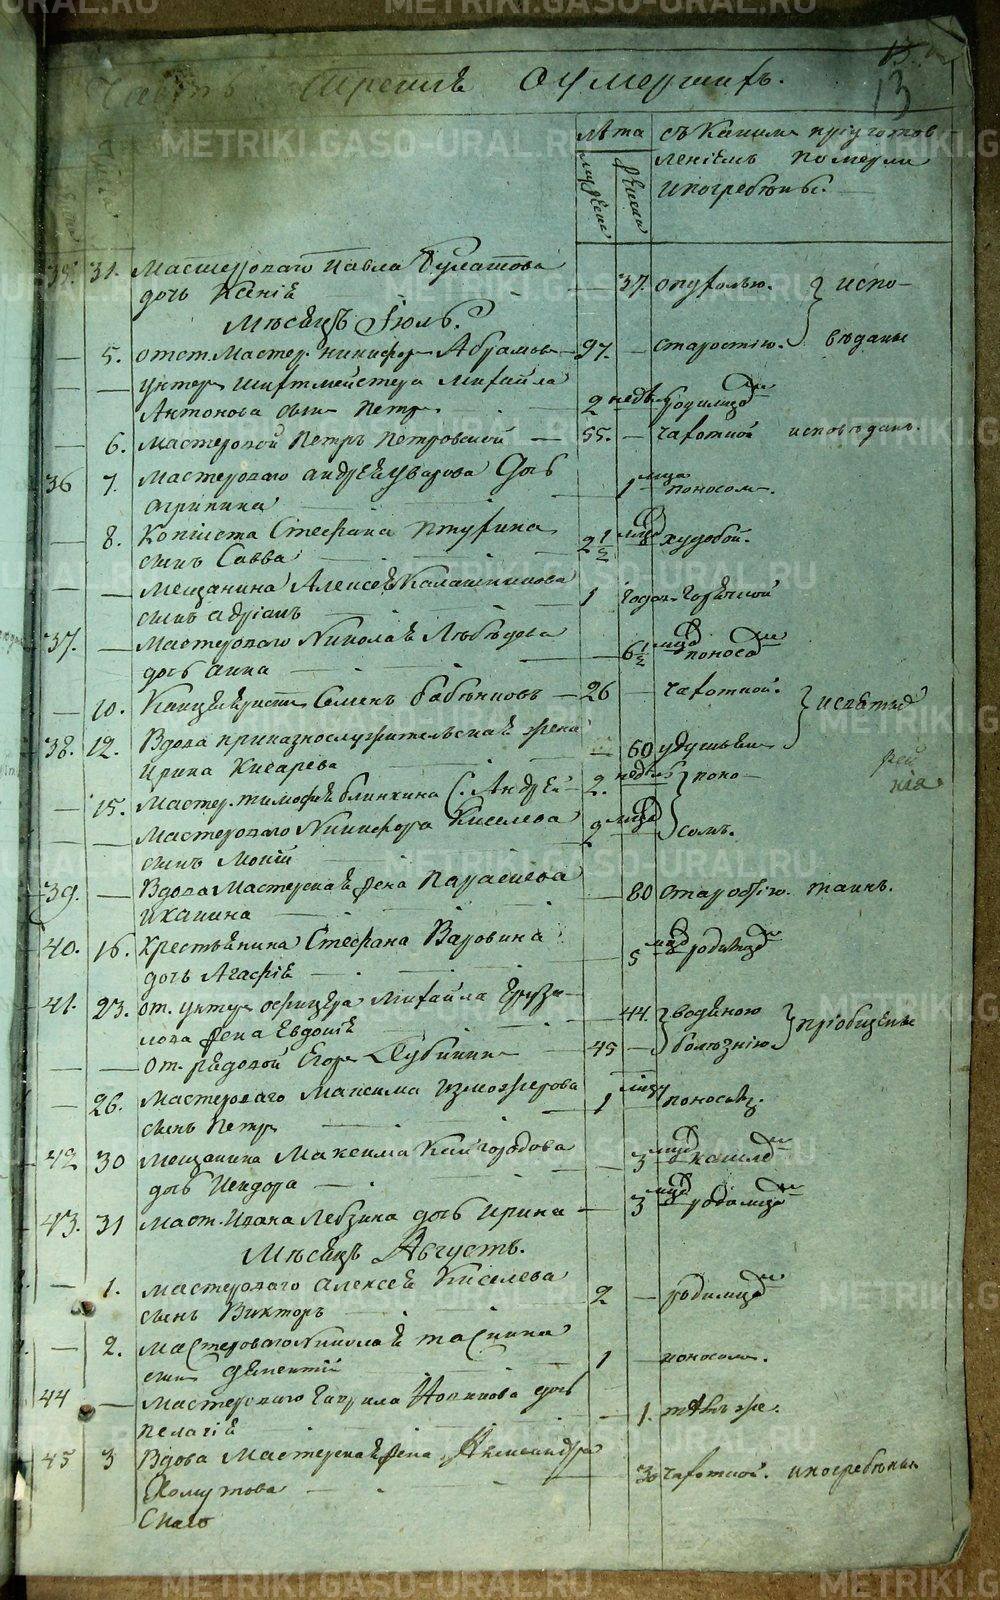 METRIKI.GASO-URAL.RU
13
Часть третія О умершихъ.
лѣта
мужеска
женска
съ какимъ пріуготов-
леніемъ померли
и погребены.
31. Мастероваго Павла Булатова
дочь Ксенія — 37. опухолью. испо-
Мѣсяцъ Іюль.
— 5. отст. Мастер. Никифоръ Абрамовъ — 97. — старостію. вѣданы
— — Унтеръ шихтмейстера Михайла
Антонова сынъ Петръ. 2 недѣл. родимцѣ
— 6. Мастеровой Петръ Петровской — 55. — чахоткой исповѣданъ.
36 7. Мастероваго Андрея Уварова дочь
Агрипина — 1 мца поносом.
— 8. Копіиста Стефана Птухина
сынъ Савва — 2 1/2 мцд худобой.
— — Мещанина Алексея Калашникова
сынъ Адріанъ — 1 годъ горячкой
37. — Мастероваго Николая Лебедева
дочь Анна — 6 1/2 мцд поноса
— 10. Канцеляристъ Семенъ Бабинцовъ — 26 — чахоткой.
38. 12. Вдова приказнослужительская жена
Ирина Кисарева — 60 удушьемъ
— 15. Мастер. Тимофея Блинкина С. Андрей — 2. недѣл. поно-
— — Мастероваго Никифора Киселева
сынъ Мокій 2 мцд сомъ.
39. — Вдова Мастерская жена Парасковья
Иканина — 80 старостію. такъ.
40. 16. Крестьянина Стефана Варовина
дочь Агафія — 5 мцд родимцѣ
41. 23. от. унтер офицера Михайла
лова жена Евдокія — 44. водяною пріобщены
— — От. рядовой Егоръ Дубининъ — 45 — болѣзнію
— 26. Мастероваго Максима Изможерова
сынъ Петръ — 1 мцу поносомъ.
42 30 Мещанина Максима Кайгородова
дочь Исидора — 3 мцд кашлѣ
43. 31 Маст. Ивана Левзина дочь Ирина — 3 мцд родимцѣ
Мѣсяцъ Августъ.
— 1. Мастероваго Алексея Киселева
сынъ Викторъ — 2 — родимцѣ
— 2. Мастероваго Николая
сынъ Дементій 1 поносомъ.
44 — Мастероваго Гаврила Новикова дочь
Пелагія — 1. тѣмъ же.
45 3 Вдова Мастерская жена Александра
Хомутова — 30 чахоткой. и погребены